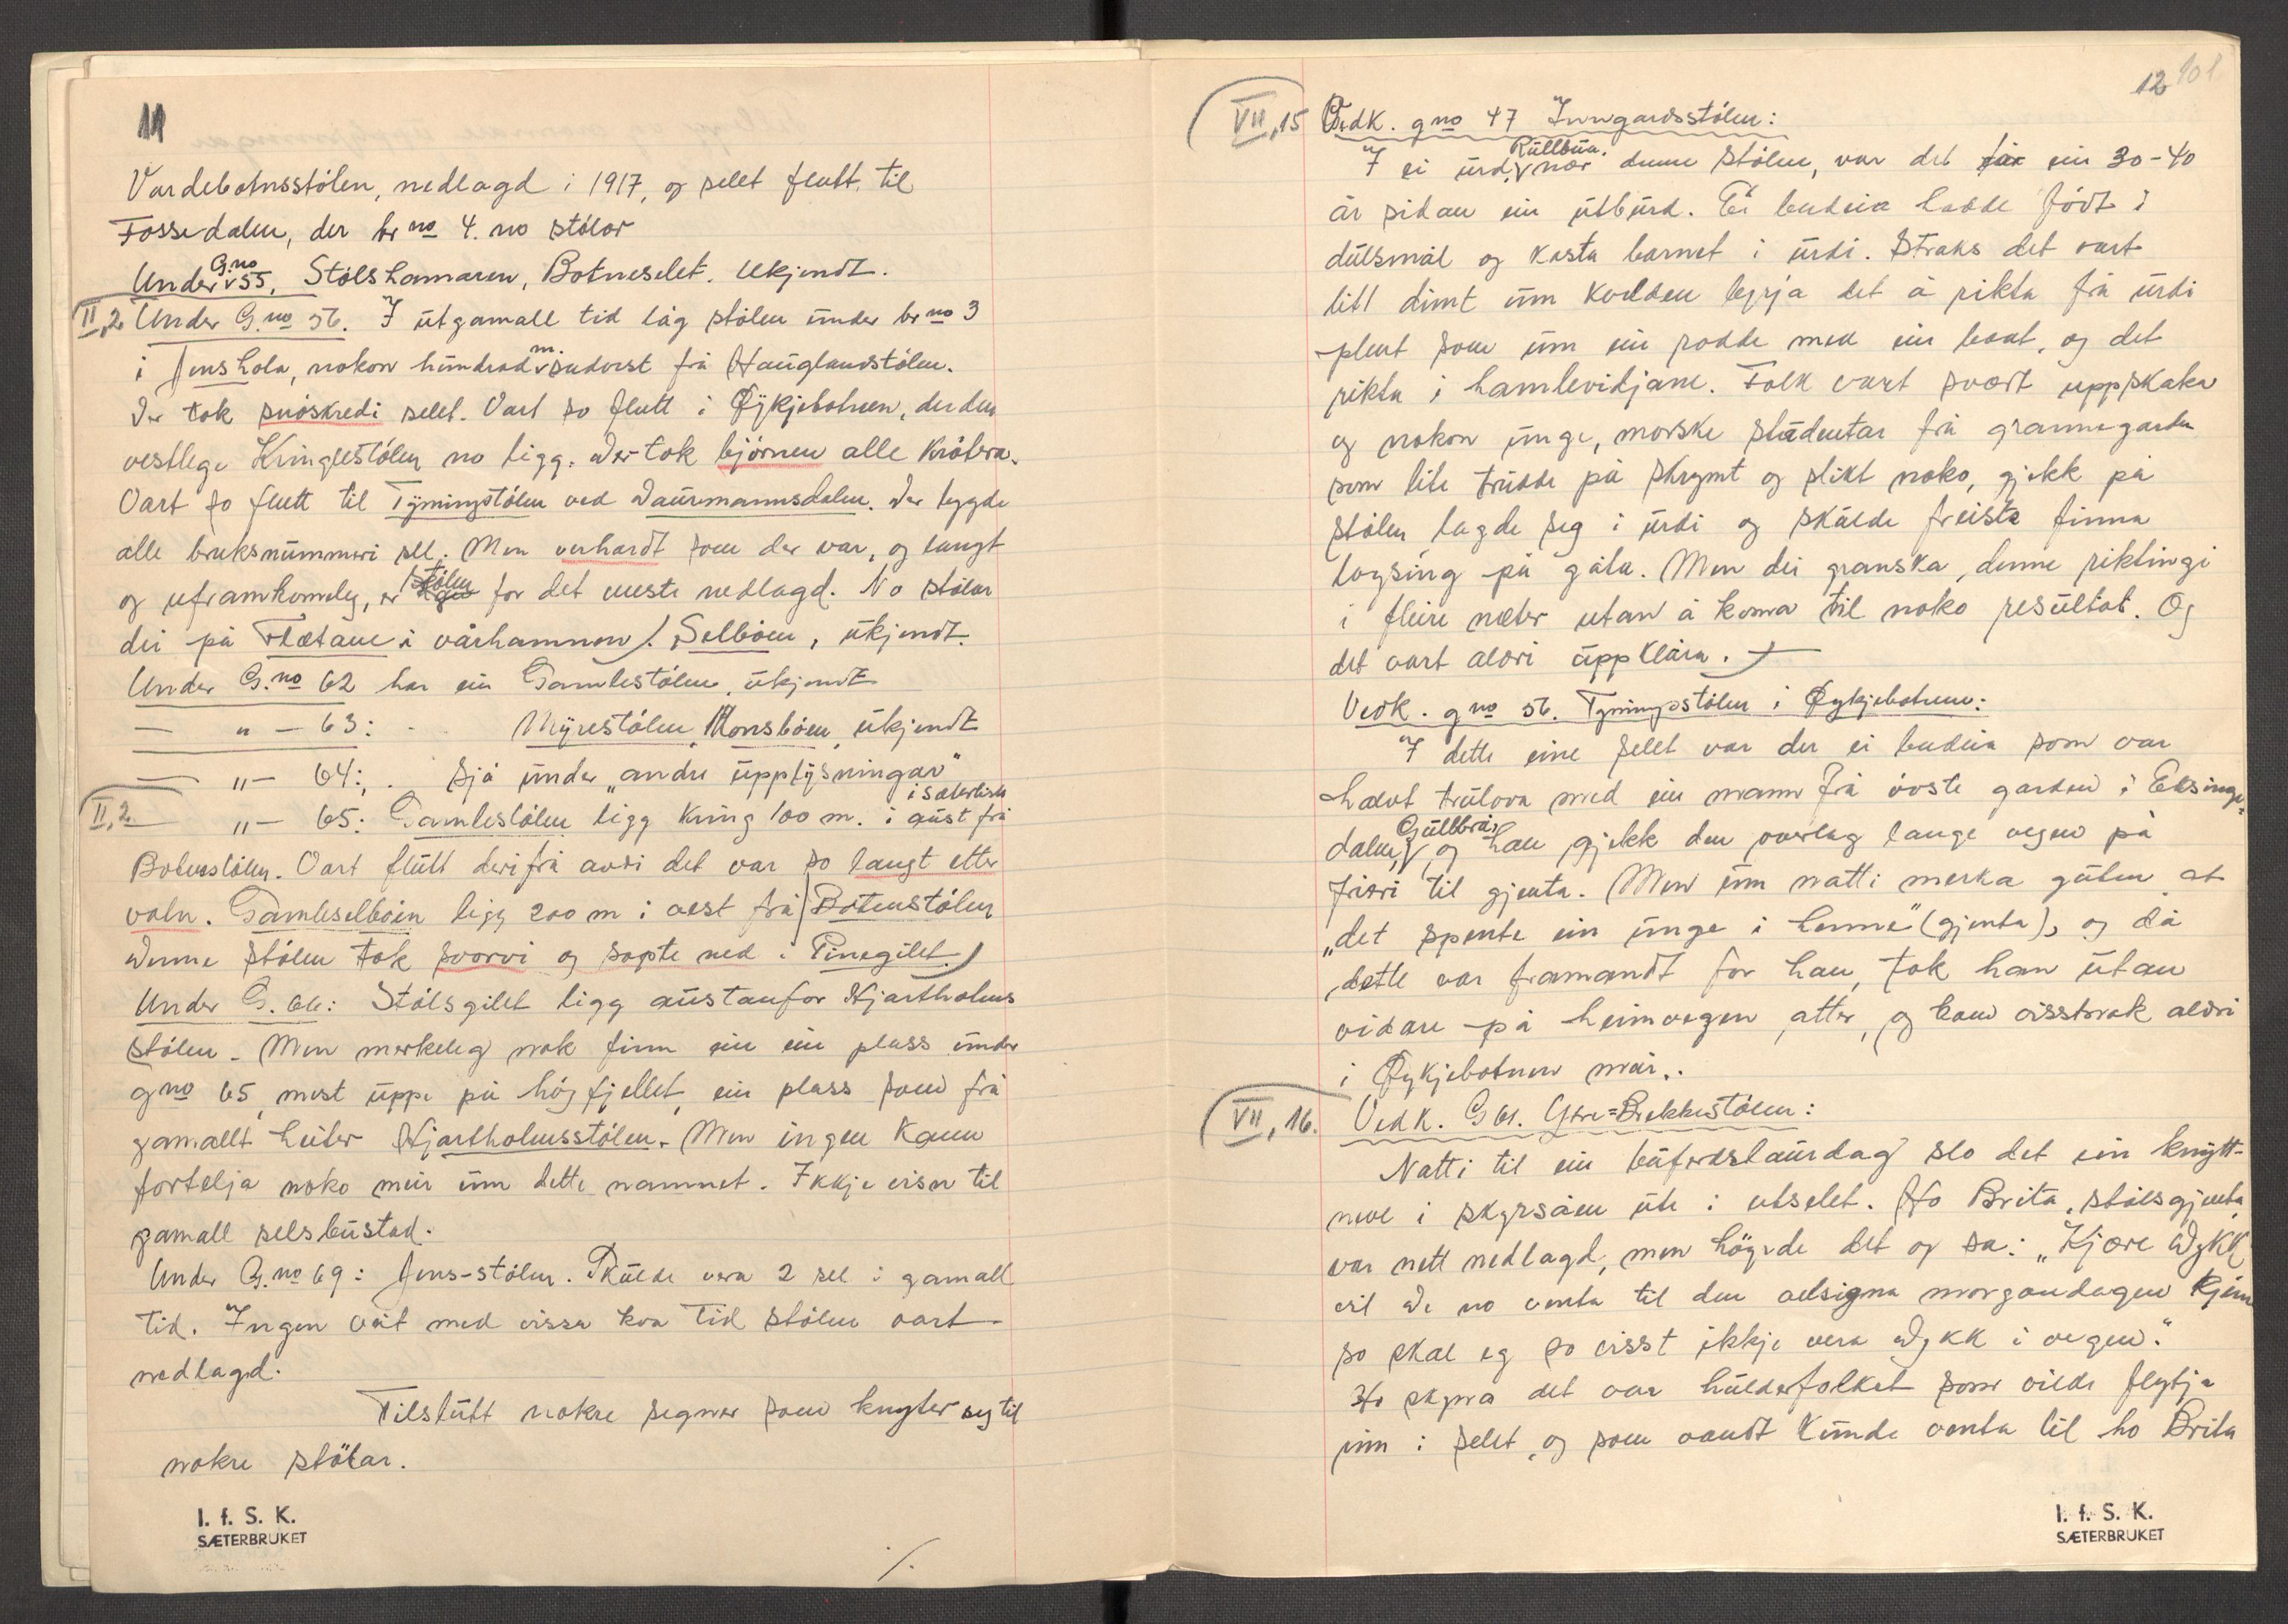 11
Vardebotnsstólen, nedlagd i 1917, og selet flutt til
Fossedalen, der br no 4. no stólar
Under G.no 55, Stólshamaren, Botneselet. Ukjendt.
II,2 Under G.no 56. I utgamall tid låg stólen under br no 3
i Jenshola, nokon hundrad m. sudvest frå Hauglandstólen.
Der tok snóskredi selet. Vart so flutt i Øykjebotnen, der den
vestlege Kringlestólen no ligg. Der tok bjórnen alle krótera.
Vart so flutt til Tyningstólen ved Daurmannsdalen. Der bygde
alle bruksnummeri sel. Men verhardt som der var, og langt
og uframkomeleg, er stólen for det meste nedlagd. No stólar
dei på Flætane i vårhamnen). Selbóen, ukjendt.
Under G.no 62 har ein Gamlestólen, ukjendt
— " — 63: Myrestólen, Monsbóen, ukjendt
— " — 64: Sjå under „andre upplysningar"
i sæterlista
II,2 — " — 65: Gamlestólen ligg kring 100 m. i aust frå
Botnestólen. Vart flutt derifrå avdi det var so langt etter
vatn. Gamleselbóen ligg 200 m i vest frå Botnestólen
Denne stólen tok svorvi og sopte ned i Pinegilet.)
Under G. 66: Stólsgilet ligg austanfor Hjartholms
stólen. Men merkeleg nok finn ein ein plass under
gno 65, mest uppe på högfjellet, ein plass som frå
gamallt heiter Hjartholmsstólen. Men ingen kann
fortelja noko meir um dette namnet. Ikkje visar til
gamall selsbustad.
Under G.no 69: Jens-stólen. Skulde vera 2 sel i gamall
tid. Ingen veit med vissa kva tid stólen vart
nedlagd.
Tilslutt nokre segner som knyter seg til
nokre stólar.
I. f. S. K.
SÆTERBRUKET
./.
12 101
VII,15 Vedk. gno 47 Inngardsstólen:
I ei urd, Rullbua. nær denne stólen, var det for ein 30-40
år sidan ein utburd. Ei budeia hadde födt i
dulsmål og kasta barnet i urdi. Straks det vart
litt dimt um kvelden byrja det å rikta frå urdi
plent som um ein rodde med ein boat, og det
rikta i hamlevidjane. Folk vart svært uppskaka
og nokon unge, morske studentar frå grannegarden
som lite trudde på skrymt og slikt noko, gjekk på
stólen lagde seg i urdi og skulde freista finna
loysing på gåta. Men dei granska denne riktingi
i fleire næter utan å koma til noko resultat. Og
det vart aldri uppklåra.
Vedk. gno 56. Tyningsstólen i Øykjebotnen:
I dette eine selet var der ei budeia som var
halvt trulova med ein mann frå óvste garden i Eksinge-
dalen, Gullbrå, og han gjekk den overlag lange vegen på
fjóri til gjenta. Men um natti merka guten at
„det spente ein unge i henne" (gjenta), og då
dette var framandt for han, tok han utan
vidare på heimvegen atter, og kom visstnok aldri
i Øykjebotnen meir.
VII, 16. Vedk. G 61. Ytre=Brekkestólen:
Natti til ein buferdslaurdag slo det ein knytt-
neve i skyrsåen ute i utselet. Ho Brita, stólsgjenta,
var nett nedlagd, men höyrde det og sa: „Kjære Dykk
vil De no venta til den velsigna morgondagen kjem
so skal eg so visst ikkje vera Dykk i vegen."
Ho skyna det var hulderfolket som vilde flytja
inn i selet, og som vandt kunde venta til ho Brita
I. f. S. K.
SÆTERBRUKET